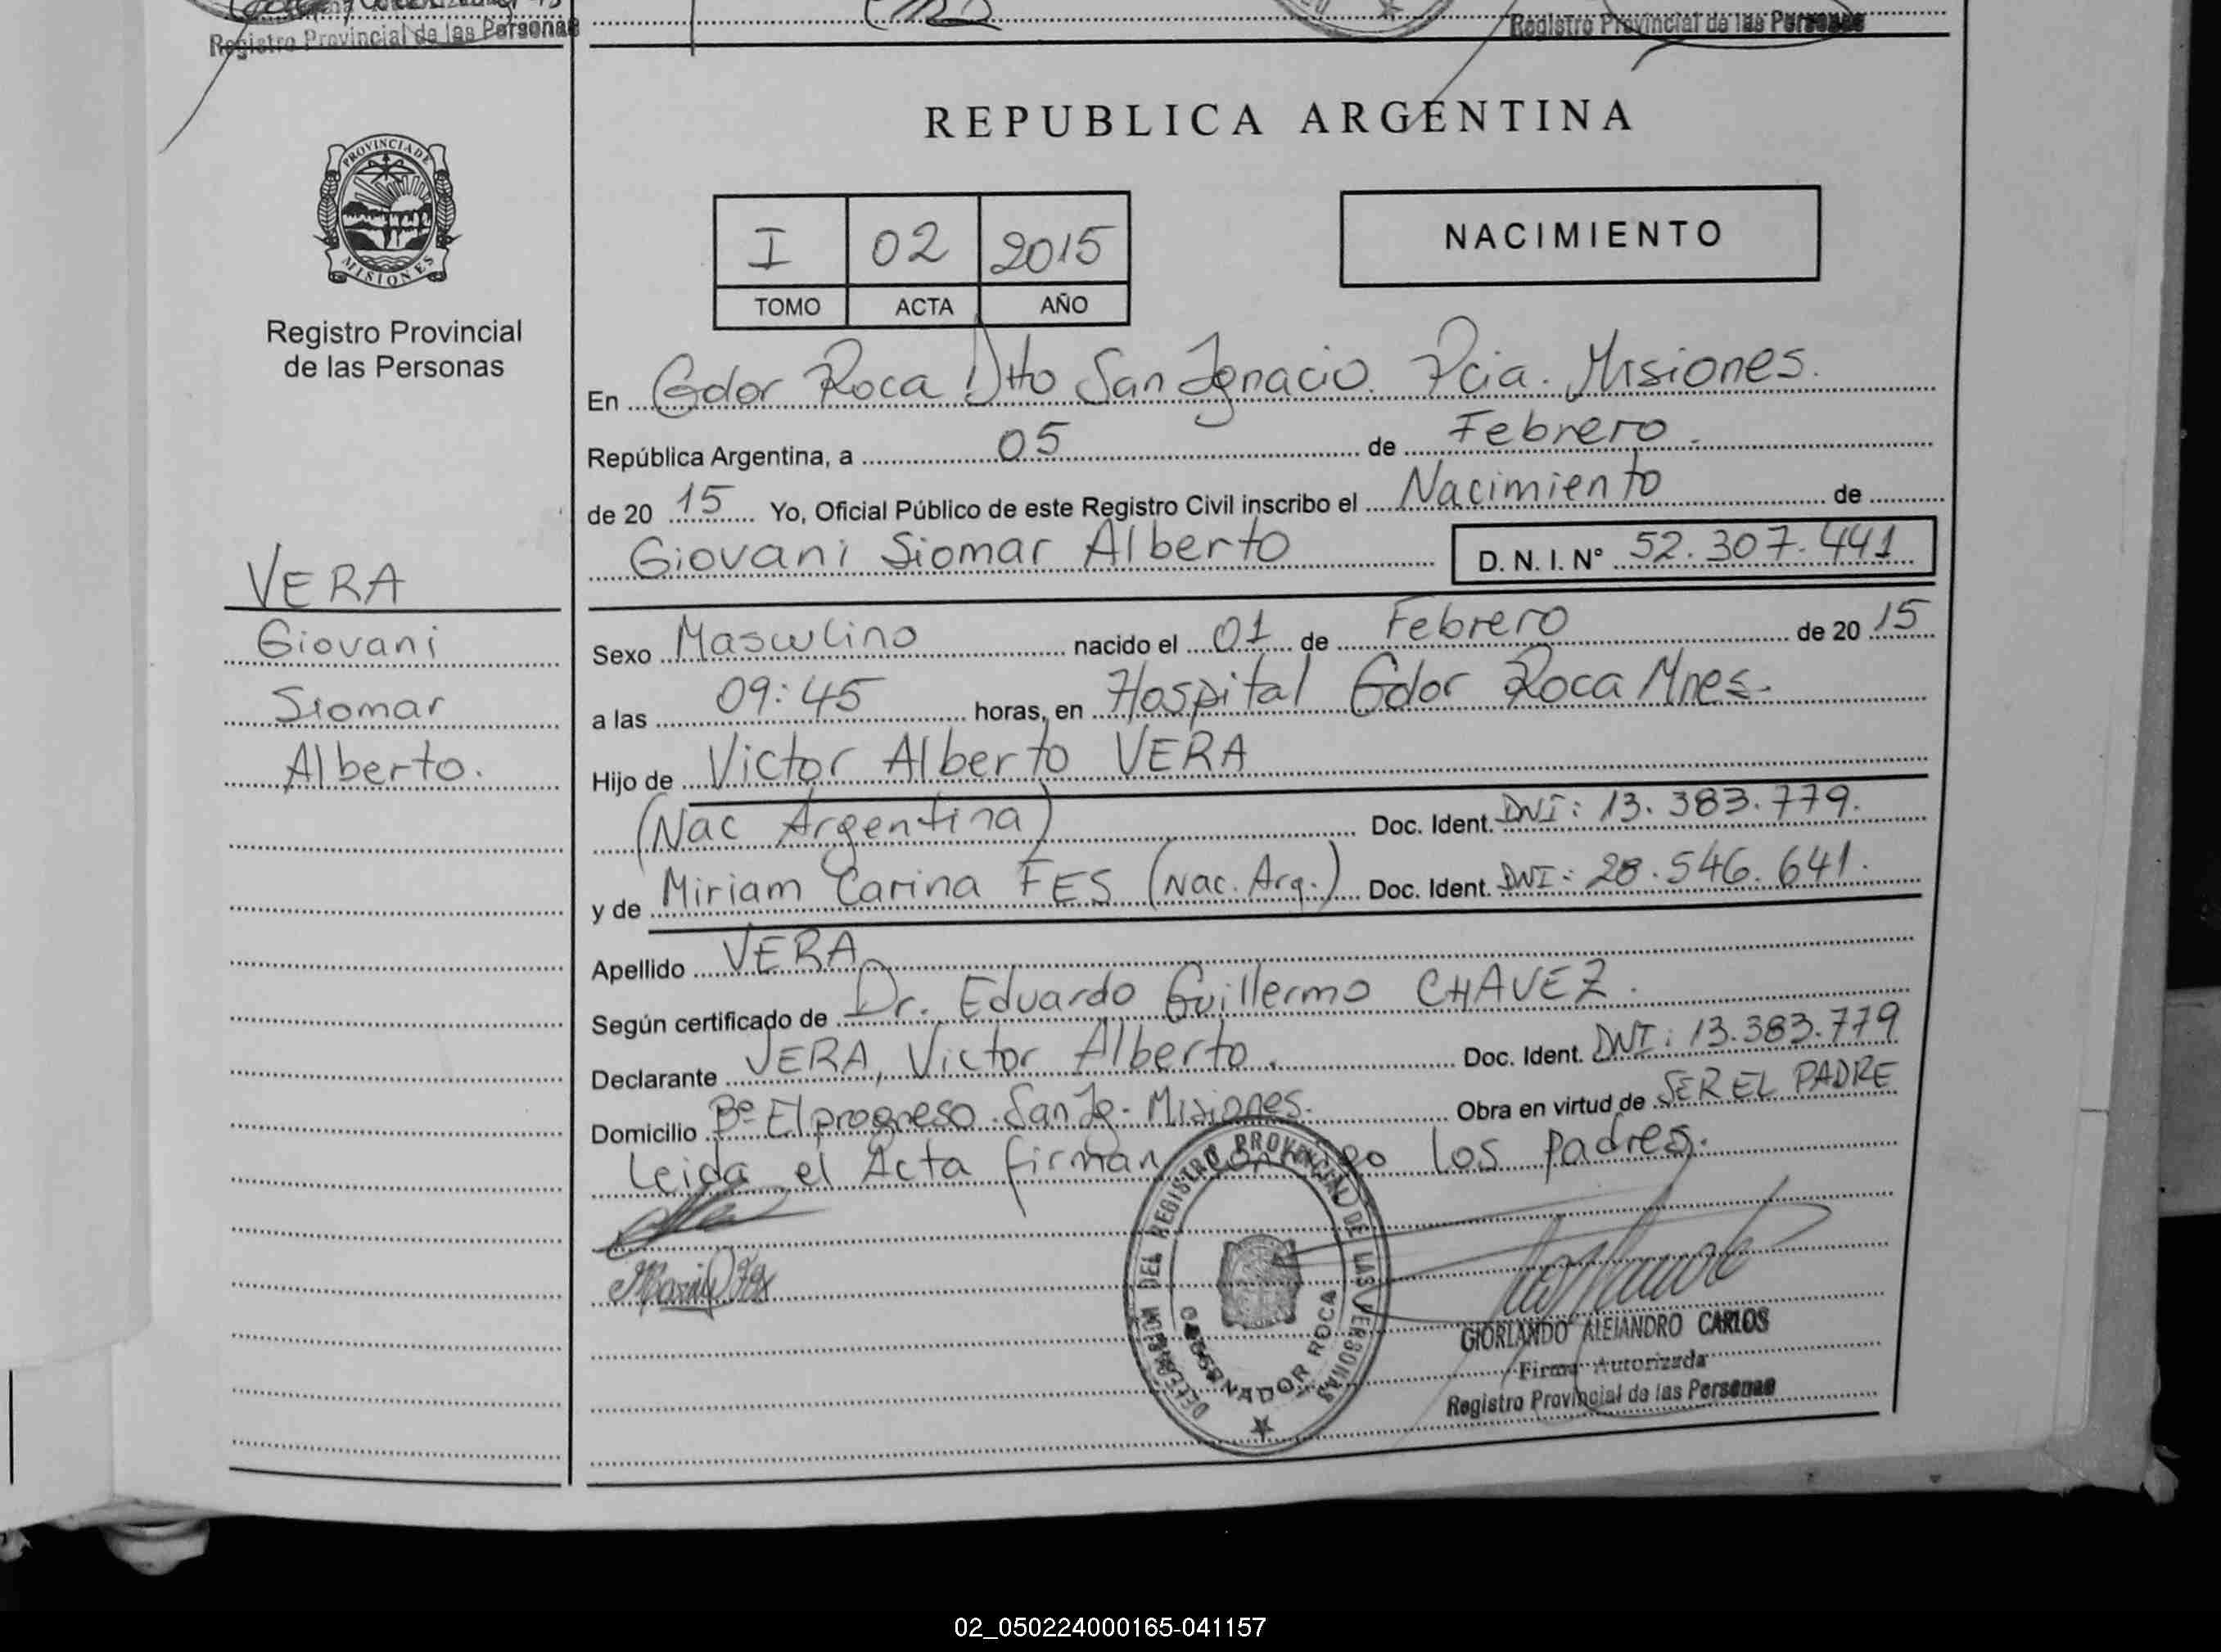 Registro Provincial de las Personas
Registro Provincial de las Personas
PROVINCIA DE
MISIONES
Registro Provincial
de las Personas
VERA
Giovani
Siomar
Alberto.
REPUBLICA ARGENTINA
I 02 2015
TOMO ACTA AÑO
NACIMIENTO
En Gdor Roca Dtto San Ignacio. Pcia. Misiones.
República Argentina, a 05 de Febrero.
de 20 15 Yo, Oficial Público de este Registro Civil inscribo el Nacimiento de
Giovani Siomar Alberto D. N. I. N° 52.307.441
Sexo Masculino nacido el 01 de Febrero de 20 15
a las 09:45 horas, en Hospital Gdor Roca Mnes.
Hijo de Victor Alberto VERA
(Nac Argentina) Doc. Ident. DNI: 13.383.779.
y de Miriam Carina FES (Nac. Arg.) Doc. Ident. DNI: 28.546.641.
Apellido VERA
Según certificado de Dr. Eduardo Guillermo CHAVEZ.
Declarante VERA, Victor Alberto. Doc. Ident. DNI: 13.383.779
Domicilio Bº El progreso San Ig. Misiones. Obra en virtud de SER EL PADRE
Leida el Acta firman conmigo los padres.
DELEGACION DEL REGISTRO PROVINCIAL DE LAS PERSONAS
GOBERNADOR ROCA
GIORLANDO ALEJANDRO CARLOS
Firma Autorizada
Registro Provincial de las Personas
02_050224000165-041157